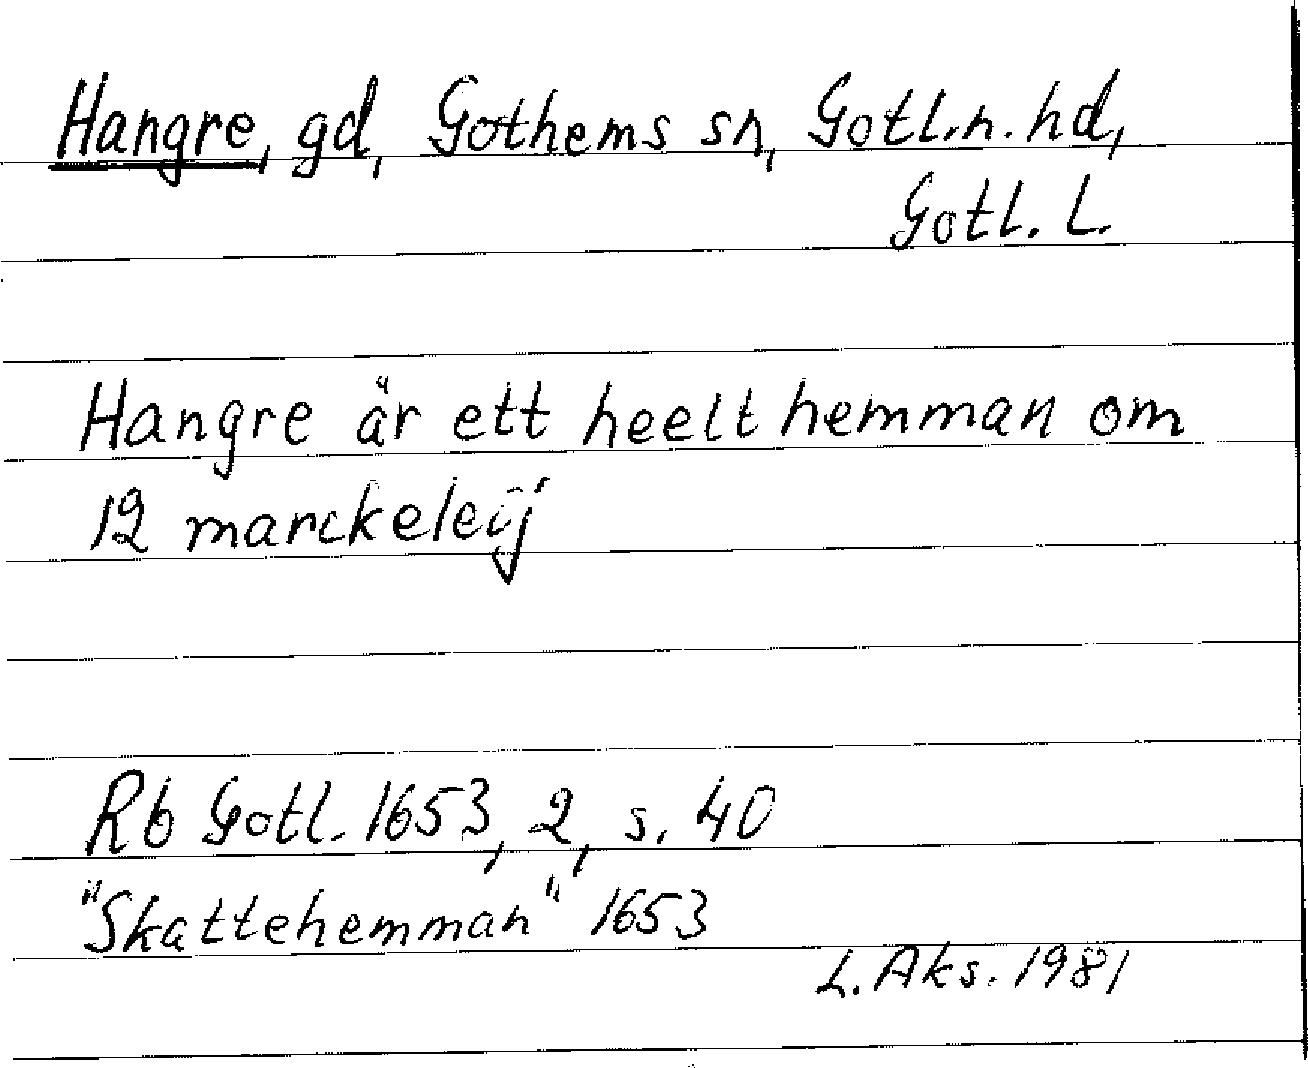 Hangre, gd, Gothems sn, Gotl.n. hd,
Gotl. L.
Hangre är ett heelt hemman om
12 marckeleij
Rb Gotl. 1653, 2, s. 40
"Skattehemman" 1653
L. Aks. 1981